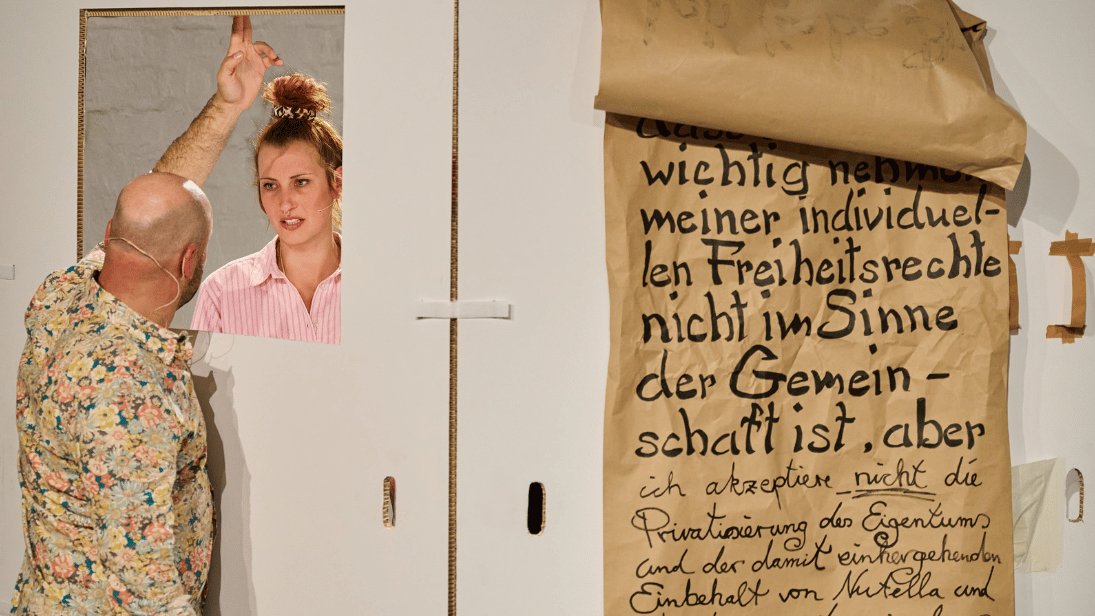 dass
wichtig nehmen
meiner individuel-
len Freiheitsrechte
nicht im Sinne
der Gemein-
schaft ist, aber
ich akzeptiere nicht die
Privatisierung des Eigentums
und der damit einhergehenden
Einbehalt von Nutella und